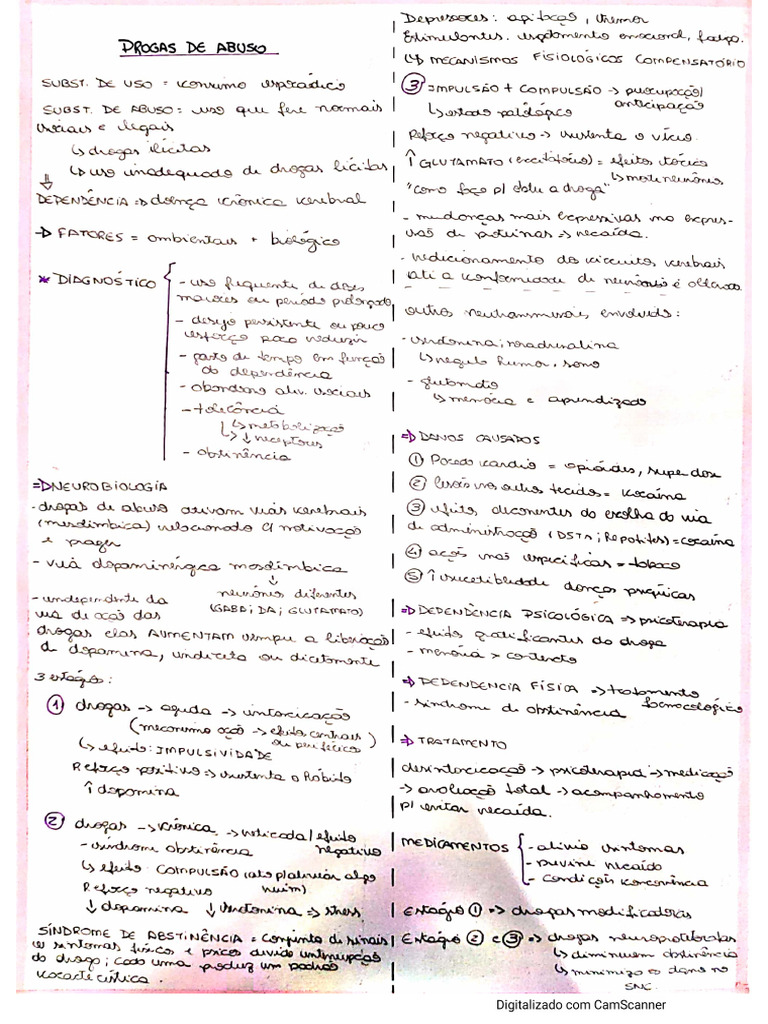 DROGAS DE ABUSO
SUBST. DE USO = consumo esporádico
SUBST. DE ABUSO: uso que fere normais
sociais e legais
↳ drogas ilícitas
↳ uso inadequado de drogas lícitas
⇓
DEPENDÊNCIA ⇒ doença crônica cerebral
→ FATORES = ambientais + biológico
* DIAGNÓSTICO
- uso frequente de doses
maiores ou período prolongado
- desejo persistente ou pouco
esforço para reduzir
- gasto de tempo em função
da dependência
- abandono ativ. sociais
- tolerância
↳ metabolização
↳ ↓ receptores
- abstinência
⇒ NEUROBIOLOGIA
- drogas de abuso ativam vias cerebrais
(mesolímbica) relacionado c/ motivação
e prazer
- via dopaminérgica mesolímbica
↓
neurônios diferentes
(GABA; DA; GLUTAMATO)
- independente da
via de ação das
drogas elas AUMENTAM sempre a liberação
de dopamina, indireta ou diretamente
3 estágios:
① drogas → aguda → intoxicação
(mecanismo ação → efeitos centrais
ou periféricos)
↳ efeito: IMPULSIVIDADE
Reforço positivo ⇒ sustenta o hábito
↑ dopamina
② drogas → crônica → retirada/efeito
negativo
- síndrome abstinência
↳ efeito COMPULSÃO (ato p/ aliviar algo
ruim)
Reforço negativo
↓ dopamina ↓ serotonina ⇒ stress
SÍNDROME DE ABSTINÊNCIA = conjunto de sinais
e sintomas físicos e psicos devido interrupção
da droga; cada uma produz um padrão
característica.
Depressores: agitação, tremor
Estimulantes: esgotamento emocional, fadiga.
↳ MECANISMOS FISIOLÓGICOS COMPENSATÓRIO
③ IMPULSÃO + COMPULSÃO → preocupação/
antecipação
↳ estado patológico
Reforço negativo → sustenta o vício
↑ GLUTAMATO (excitatório) = efeitos
↳ motoneurônios
"como faço p/ obter a droga"
- mudanças mais expressivas na expres-
são de proteínas → recaída.
- redicionamento do circuitos cerebrais
até a conformidade de neurônios é alterada
outros neurotransmissores envolvidos:
- serotonina; noradrenalina
↳ regula humor, sono
- glutamato
↳ memória e aprendizado
⇒ DANOS CAUSADOS
① Parada cardio = opióides, super dose
② lesões nos outros tecidos = cocaína
③ efeitos decorrentes da escolha da via
de administração (DSTs; hepatites) = cocaína
④ ações mais específicas = tabaco
⑤ ↑ sucetibilidade doenças psíquicas
⇒ DEPENDÊNCIA PSICOLÓGICA ⇒ psicoterapia
- efeitos gratificantes da droga
- memória > contexto
⇒ DEPENDENCIA FÍSICA ⇒ tratamento
farmacológico
- síndrome de abstinência
⇒ TRATAMENTO
desintoxicação → psicoterapia → medicação
→ avaliação total → acompanhamento
p/ evitar recaída.
MEDICAMENTOS
- alivio sintomas
- previne recaída
- condições concorrência
Estágio ① ⇒ drogas modificadoras
Estágio ② e ③ ⇒ drogas neuroprotetoras
↳ diminuem abstinência
↳ minimiza o dano no
SNC.
Digitalizado com CamScanner